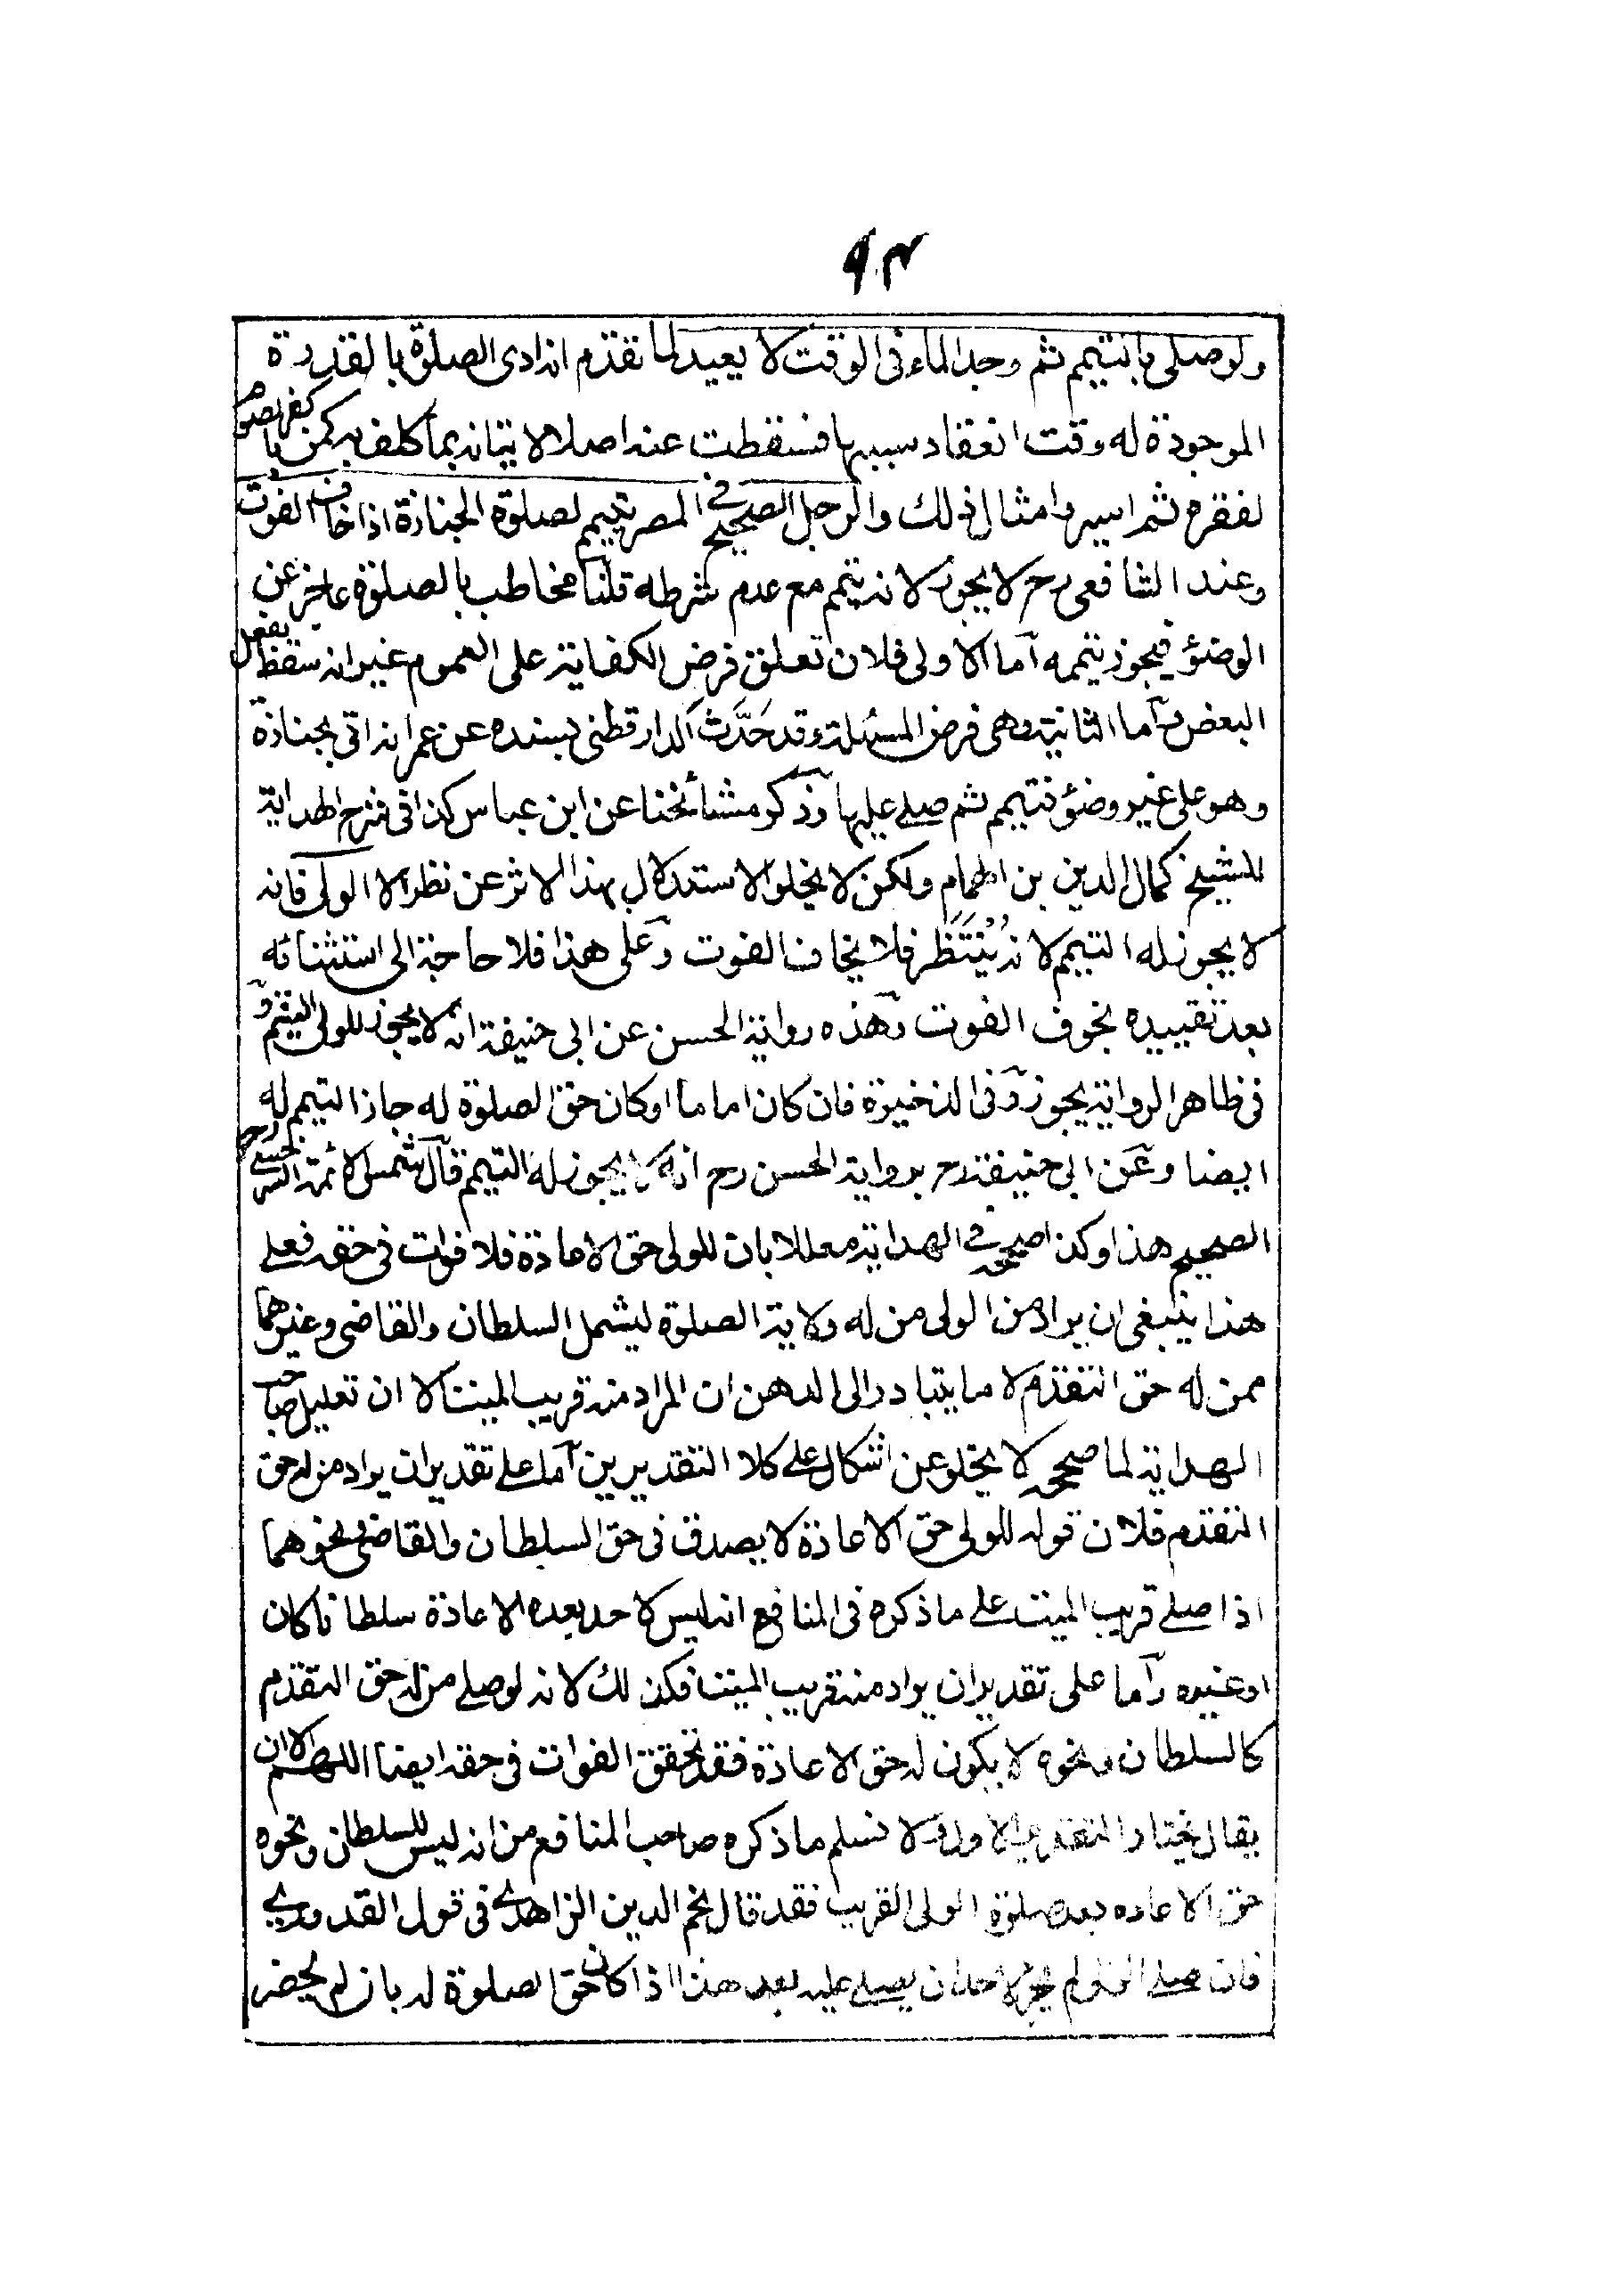 ٩٣
ولو صلى بالتيمم ثم وجد الماء فى الوقت لا يعيد لما تقدم انه ادى الصلوة بالقدرة
الموجودة له وقت انعقاد سببها فسقطت عنه اصلا لاتيانه بما كلف به كمن كفر بالصوم
لفقره ثم ايسر وامثال ذلك والرجل الصحيح فى المصر يتيمم لصلوة الجنازة اذا خاف الفوت
وعند الشافعى رح لا يجوز لانه تيمم مع عدم شرطه قلنا مخاطب بالصلوة عاجز عن
الوضؤ فيجوز تيممه اما الاولى فلان تعلق فرض الكفاية على العموم غير انه سقط بفعل
البعض واما الثانية وهى فرض المسئلة وقد حَدَّث الدارقطنى بسنده عن عمر انه اتى بجنازة
وهو على غير وضؤ فتيمم ثم صلے عليها وذكر مشائخنا عن ابن عباس كذا فى شرح الهداية
للشيخ كمال الدين بن الهمام ولكن لا يخلو الاستدلال بهذا الاثر عن نظر الا الولى فانه
لا يجوز له التيمم لانه يُنْتَظَر فلا يخاف الفوت وعلى هذا فلا حاجة الى استثنائه
بعد تقييده بخوف الفوت وهذه رواية الحسن عن ابى حنيفة انه لا يجوز للولى التيمم و
فى ظاهر الرواية يجوز وفى الذخيرة فان كان اماما او كان حق الصلوة له جاز التيمم له
ايضا وعن ابى حنيفة رح برواية الحسن رح انه لا يجوز له التيمم قال شمس الائمة السرخسى رح
الصحيح هذا وكذا صححه فى الهداية معللا بان للولى حق الاعادة فلا فوات فى حقه فعلے
هذا ينبغى ان يراد من الولى من له ولاية الصلوة ليشمل السلطان والقاضى وغيرهما
ممن له حق التقدم لا ما يتبادر الى الذهن ان المراد منه قريب الميت الا ان تعليل صاحب
الهداية لما صححه لا يخلو عن اشكال علے كلا التقديرين اما علے تقدير ان يراد من له حق
التقدم فلان قوله للولى حق الاعادة لا يصدق فى حق السلطان والقاضى ونحوهما
اذا صلے قريب الميت علے ما ذكره فى المنافع انه ليس لاحد بعده الاعادة سلطانا كان
او غيره واما على تقدير ان يراد منه قريب الميت فكذلك لانه لو صلے من له حق التقدم
كالسلطان ونحوه لا يكون له حق الاعادة فقد تحقق الفوات فى حقه ايضا اللهم الا ان
يقال نختار التقدير الاول ولا نسلم ما ذكره صاحب المنافع من انه ليس للسلطان ونحوه
حق الاعاده بعد صلوة الولى القريب فقد قال نجم الدين الزاهدے فى قول القدورے
فان صلے الولى لم يجز لاحد ان يصلے عليه بعد هذا اذا كان حق الصلوة له بان لم يحضر